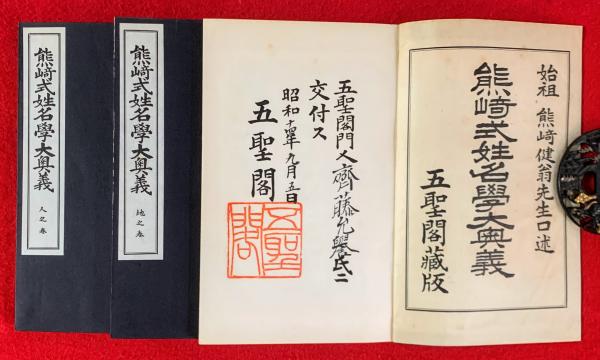 始祖 熊﨑健翁先生口述
熊﨑式姓名學大奥義
五聖閣藏版
五聖閣門人齊藤允譽氏ニ
交付ス
昭和十四年九月五日
五聖閣
五聖
閣
熊﨑式姓名學大奥義
地之巻
熊﨑式姓名學大奥義
人之巻